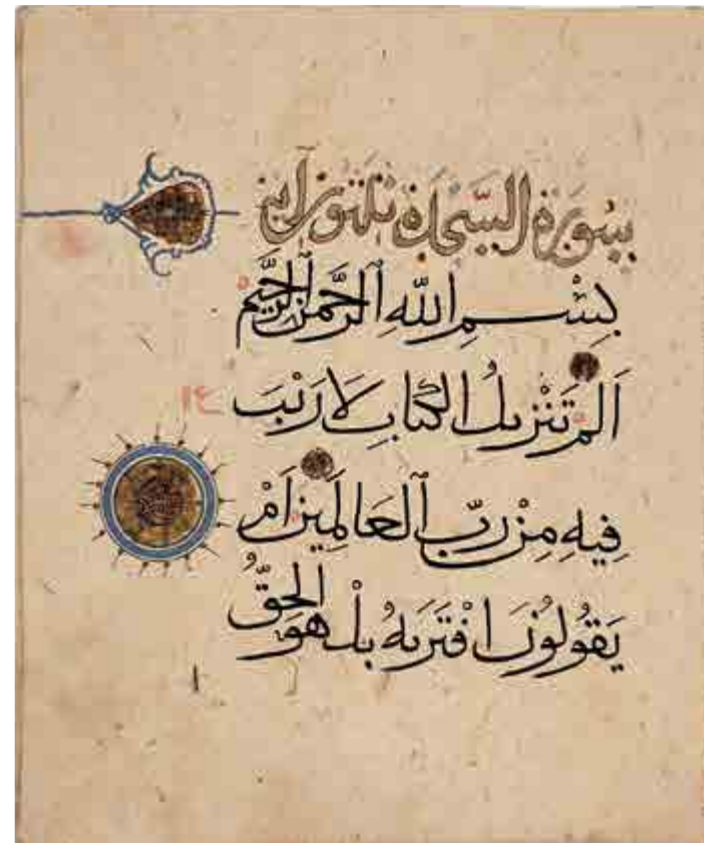 سورة السجدة ثلثون آية
بِسْمِ اللَّهِ ٱلرَّحْمٰنِ ٱلرَّحِيمِ
الم تَنْزِيلُ الكِتَابِ لَا رَيْبَ
فِيهِ مِنْ رَبِّ ٱلعَالَمِينَ اَمْ
يَقُولُونَ افْتَرَيهُ بَلْ هُوَ الحَقُّ